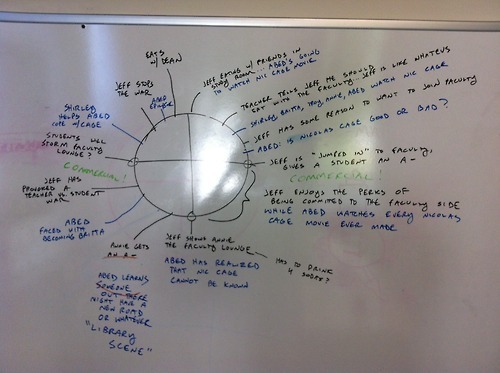 EATS
W/ DEAN
JEFF EATING W/ FRIENDS IN
STUDY ROOM... ABED'S GOING
TO WATCH NIC CAGE MOVIE
TEACHER TELLS JEFF HE SHOULD
EAT WITH THE FACULTY... JEFF IS LIKE WHATEVS
SHIRLEY, BRITTA, TROY, ANNIE, ABED WATCH NIC CAGE
JEFF HAS SOME REASON TO WANT TO JOIN FACULTY
ABED: IS NICOLAS CAGE GOOD OR BAD?
JEFF IS "JUMPED IN" TO FACULTY,
GIVES A STUDENT AN A-
COMMERCIAL!
JEFF ENJOYS THE PERKS OF
BEING COMMITED TO THE FACULTY SIDE
WHILE ABED WATCHES EVERY NICOLAS
CAGE MOVIE EVER MADE
HAS TO DRINK
4 SODAS?
JEFF SHOWS ANNIE
THE FACULTY LOUNGE
ABED HAS REALIZED
THAT NIC CAGE
CANNOT BE KNOWN
ANNIE GETS
AN A-
ABED LEARNS
SOMEONE
OUT THERE
MIGHT HAVE A
NEW ROAD
OR WHATEVER
"LIBRARY
SCENE"
ABED
FACED WITH
BECOMING BRITTA
JEFF HAS
PROVOKED A
TEACHER VS. STUDENT
WAR
COMMERCIAL!
STUDENTS WILL
STORM FACULTY
LOUNGE?
SHIRLEY
HELPS ABED
COPE W/ CAGE
JEFF STOPS
THE WAR
ABED